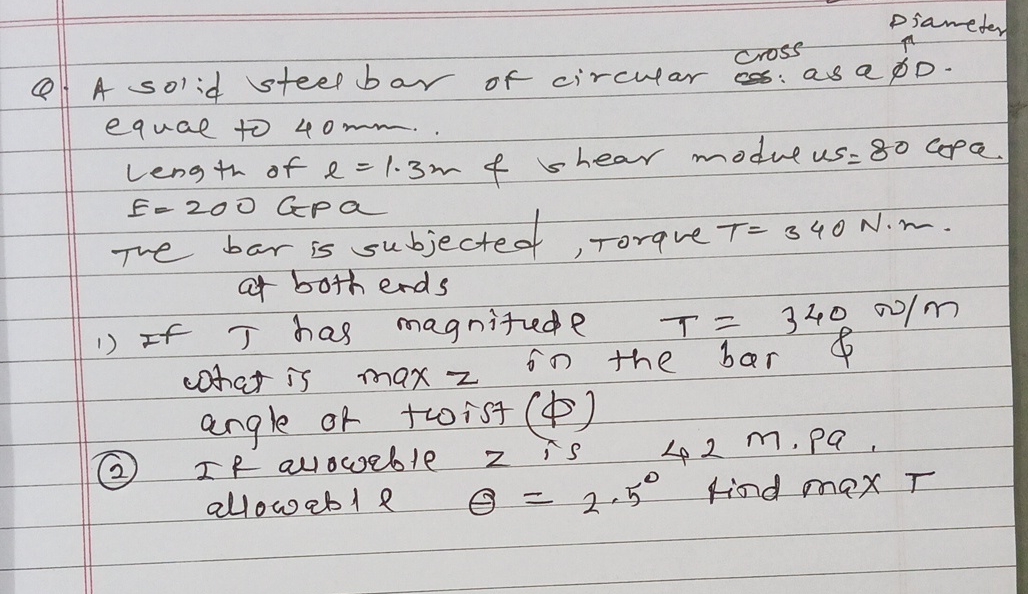 Diameter
Q. A solid steel bar of circular cross : as a ØD.
equal to 40mm..
Length of l = 1.3m & shear modulus = 80 Gpa.
E = 200 Gpa
The bar is subjected, Torque T = 340 N.m.
at both ends
1) If T has magnitude T = 340 N/m
what is max z in the bar &
angle of twist (ϕ)
② If allowable z is 42 m.pa,
allowable θ = 2.5° find max T